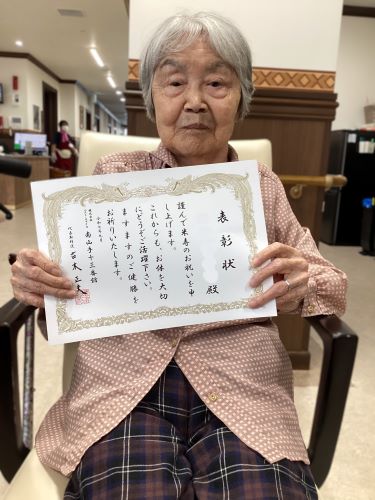 表彰状
殿
謹んで米寿のお祝いを申
し上げます。
これからも、お体を大切
にどうぞご活躍下さい。
ますますのご健勝を
お祈りいたします。